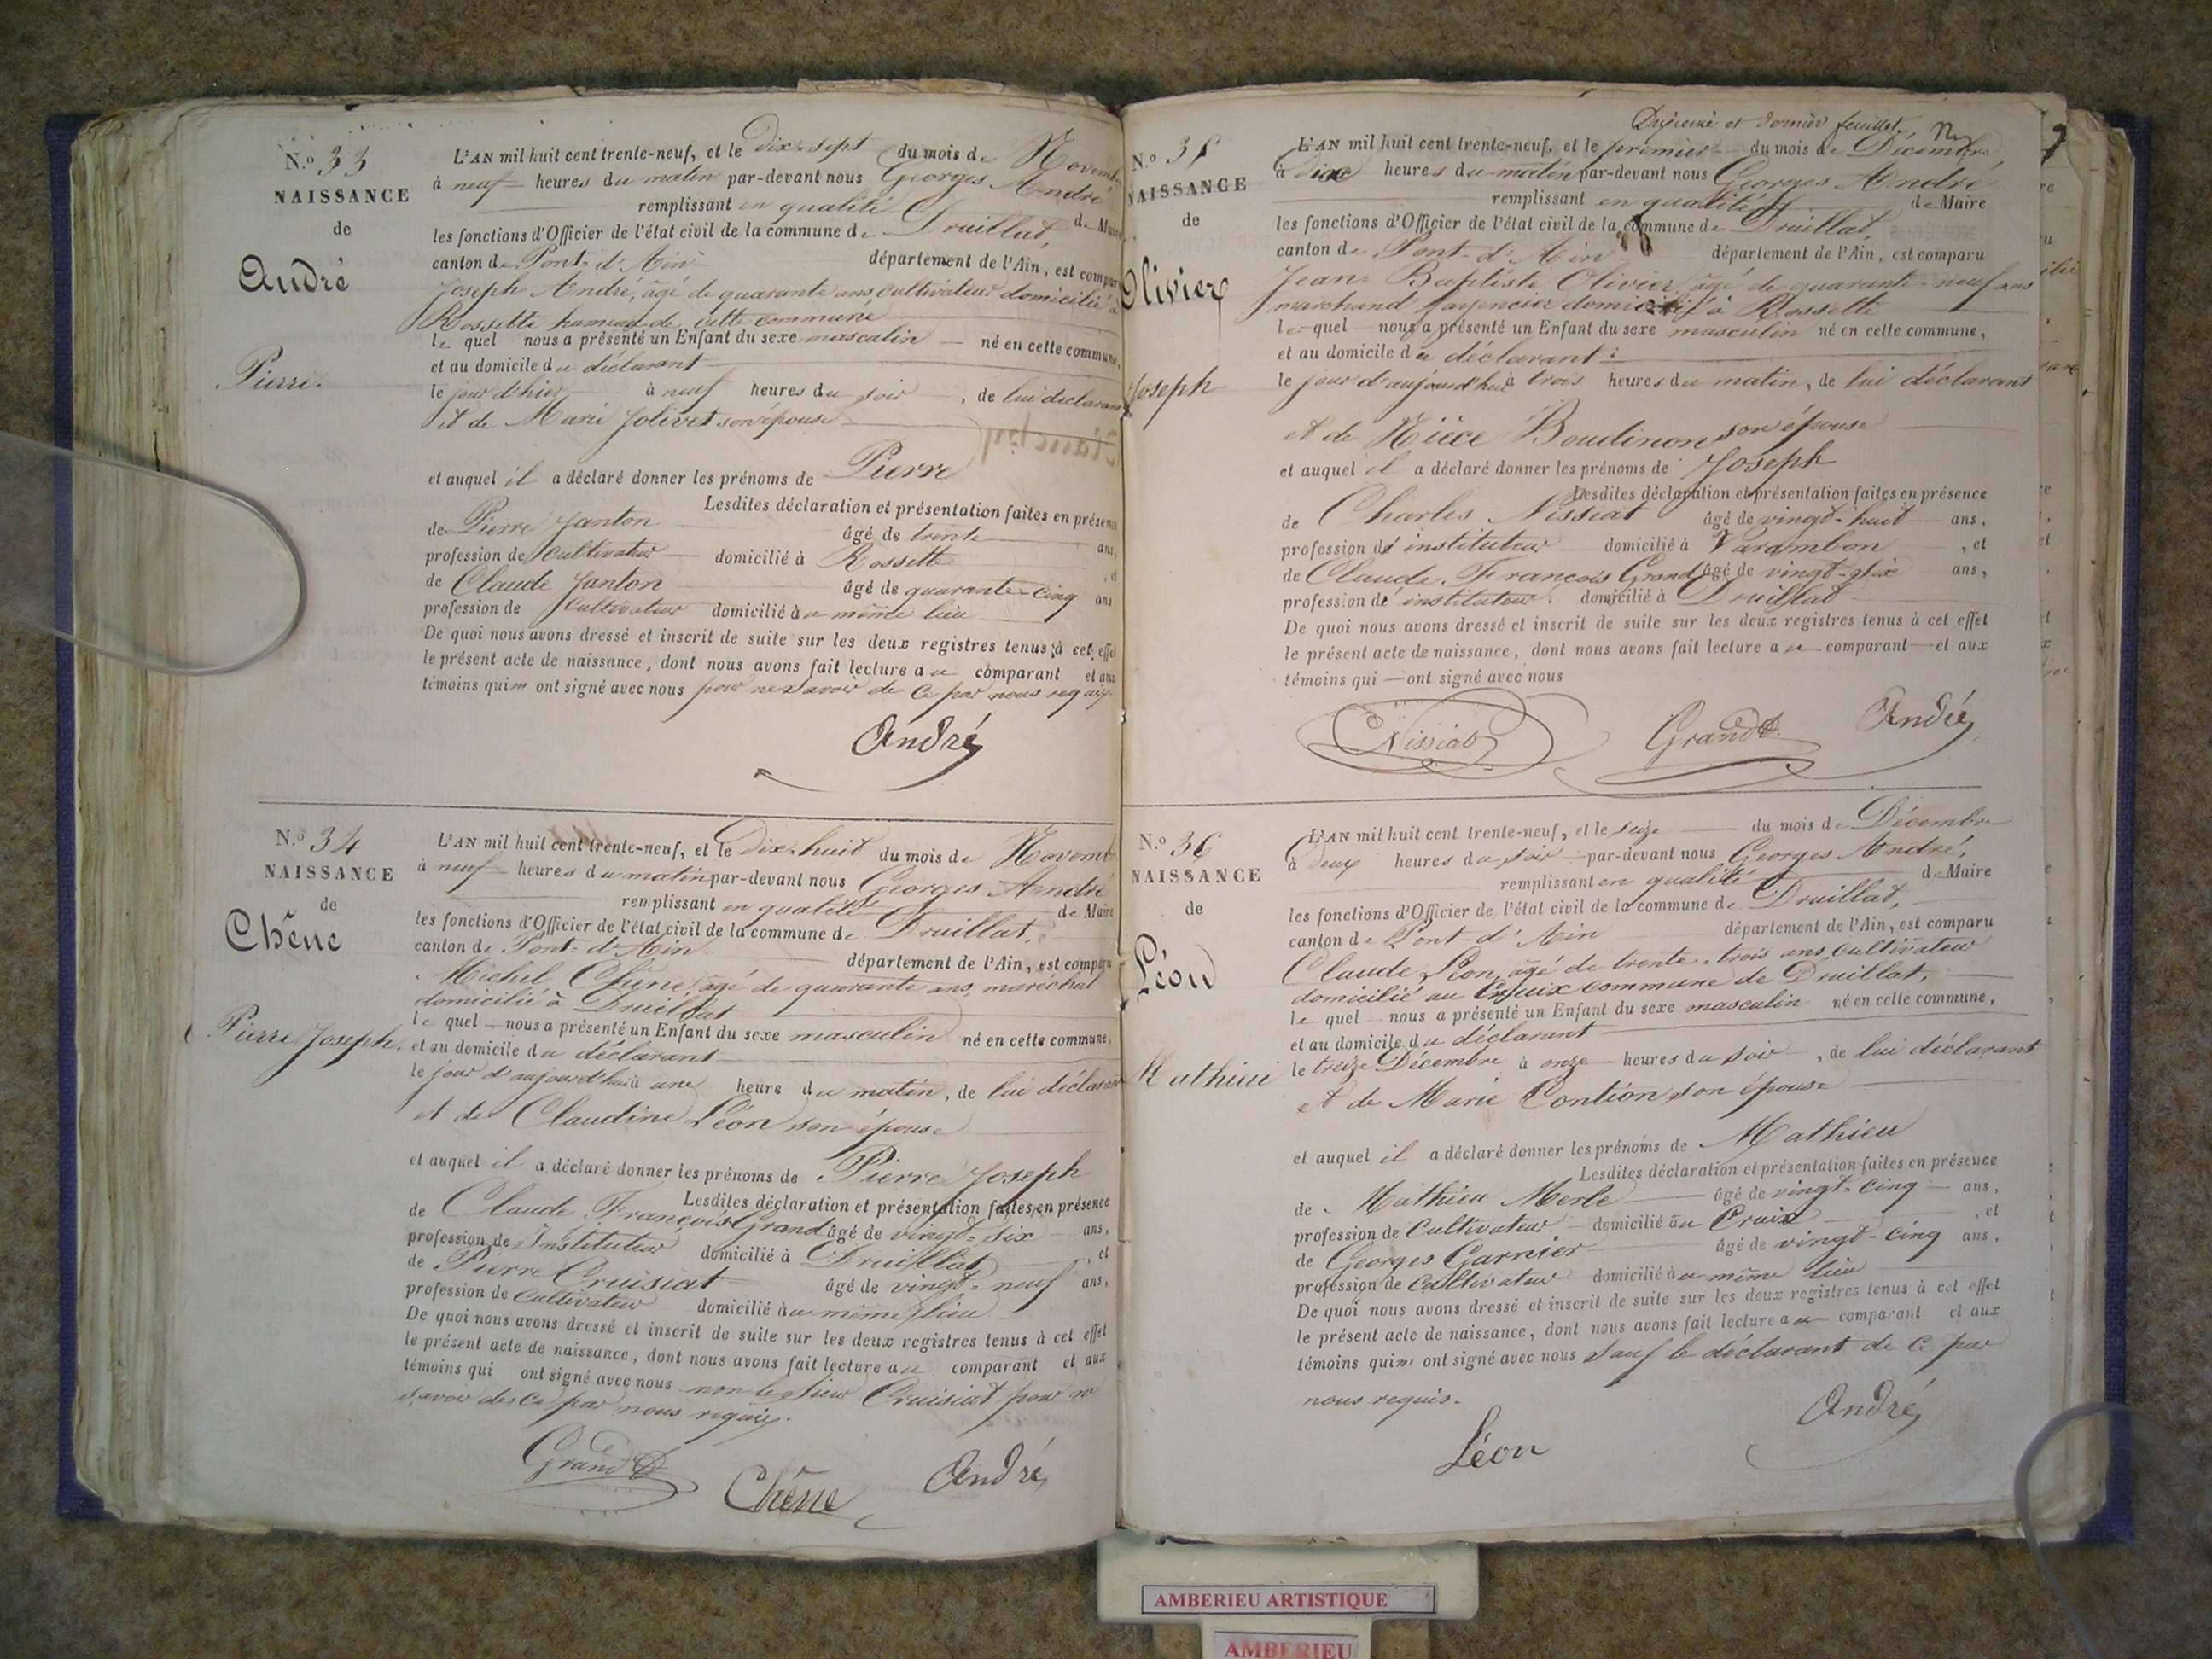 N.o 33
NAISSANCE
de
André
Pierre.
L'AN mil huit cent trente-neuf, et le dix-sept du mois de Novemb
à neuf heures du matin par-devant nous Georges André
remplissant en qualité de Maire
les fonctions d'Officier de l'état civil de la commune de Druillat,
canton de Pont-d'Ain département de l'Ain, est compar
Joseph André, âgé de quarante ans, cultivateur domicilié à
Rossette hameau de cette commune
le quel nous a présenté un Enfant du sexe masculin né en cette commune,
et au domicile du déclarant
le jour d'hier à neuf heures du soir, de lui déclarant
et de Marie Jolivet son épouse
et auquel il a déclaré donner les prénoms de Pierre
Lesdites déclaration et présentation faites en présence
de Pierre Janton âgé de trente ans,
profession de cultivateur domicilié à Rossette, et
de Claude Janton âgé de quarante-cinq ans
profession de cultivateur domicilié au même lieu
De quoi nous avons dressé et inscrit de suite sur les deux registres tenus à cet effet
le présent acte de naissance, dont nous avons fait lecture au comparant et aux
témoins qui n' ont signé avec nous pour ne savoir de ce par nous requis.
André
N.o 34
NAISSANCE
de
Chêne
Pierre Joseph.
L'AN mil huit cent trente-neuf, et le dix-huit du mois de Novemb
à neuf heures du matin par-devant nous Georges André
remplissant en qualité de Maire
les fonctions d'Officier de l'état civil de la commune de Druillat,
canton de Pont-d'Ain département de l'Ain, est comparu
Michel Chêne, âgé de quarante ans, maréchal
domicilié à Druillat
le quel nous a présenté un Enfant du sexe masculin né en cette commune,
et au domicile du déclarant
le jour d'aujourd'hui à une heure du matin, de lui déclarant
et de Claudine Léon son épouse
et auquel il a déclaré donner les prénoms de Pierre Joseph
Lesdites déclaration et présentation faites en présence
de Claude François Grand âgé de vingt-six ans,
profession de Instituteur domicilié à Druillat, et
de Pierre Cruisiat âgé de vingt-neuf ans,
profession de cultivateur domicilié au même lieu
De quoi nous avons dressé et inscrit de suite sur les deux registres tenus à cet effet
le présent acte de naissance, dont nous avons fait lecture au comparant et aux
témoins qui ont signé avec nous non le sieur Cruisiat pour ne
savoir de ce par nous requis.
Grand
Chêne
André
Dixième et dernier feuillet.
N.o 35
NAISSANCE
de
Olivier
Joseph
L'AN mil huit cent trente-neuf, et le premier du mois de Décembre
à dix heures du matin par-devant nous Georges André
remplissant en qualité de Maire
les fonctions d'Officier de l'état civil de la commune de Druillat,
canton de Pont-d'Ain département de l'Ain, est comparu
Jean-Baptiste Olivier, âgé de quarante-neuf ans
marchand domicilié à Rossette
le quel nous a présenté un Enfant du sexe masculin né en cette commune,
et au domicile du déclarant
le jour d'aujourd'hui à trois heures du matin, de lui déclarant
et de Boudinon son épouse
et auquel il a déclaré donner les prénoms de Joseph
Lesdites déclaration et présentation faites en présence
de Charles Nissiat âgé de vingt-huit ans,
profession d' instituteur domicilié à Varambon, et
de Claude François Grand âgé de vingt-six ans,
profession d' instituteur domicilié à Druillat
De quoi nous avons dressé et inscrit de suite sur les deux registres tenus à cet effet
le présent acte de naissance, dont nous avons fait lecture au comparant et aux
témoins qui ont signé avec nous
Nissiat
Grand
André
N.o 36
NAISSANCE
de
Léon
Mathieu
L'AN mil huit cent trente-neuf, et le seize du mois de Décembre
à deux heures du soir par-devant nous Georges André,
remplissant en qualité de Maire
les fonctions d'Officier de l'état civil de la commune de Druillat,
canton de Pont-d'Ain département de l'Ain, est comparu
Claude Léon, âgé de trente-trois ans, cultivateur
domicilié au commune de Druillat,
le quel nous a présenté un Enfant du sexe masculin né en cette commune,
et au domicile du déclarant
le treize Décembre à onze heures du soir, de lui déclarant
et de Marie Contion son épouse
et auquel il a déclaré donner les prénoms de Mathieu
Lesdites déclaration et présentation faites en présence
de Mathieu Merle âgé de vingt-cinq ans,
profession de cultivateur domicilié au Cruix, et
de Georges Garnier âgé de vingt-cinq ans,
profession de cultivateur domicilié au même lieu
De quoi nous avons dressé et inscrit de suite sur les deux registres tenus à cet effet
le présent acte de naissance, dont nous avons fait lecture au comparant et aux
témoins qui n' ont signé avec nous sauf le déclarant de ce par
nous requis.
Léon
André
AMBERIEU ARTISTIQUE
AMBERIEU